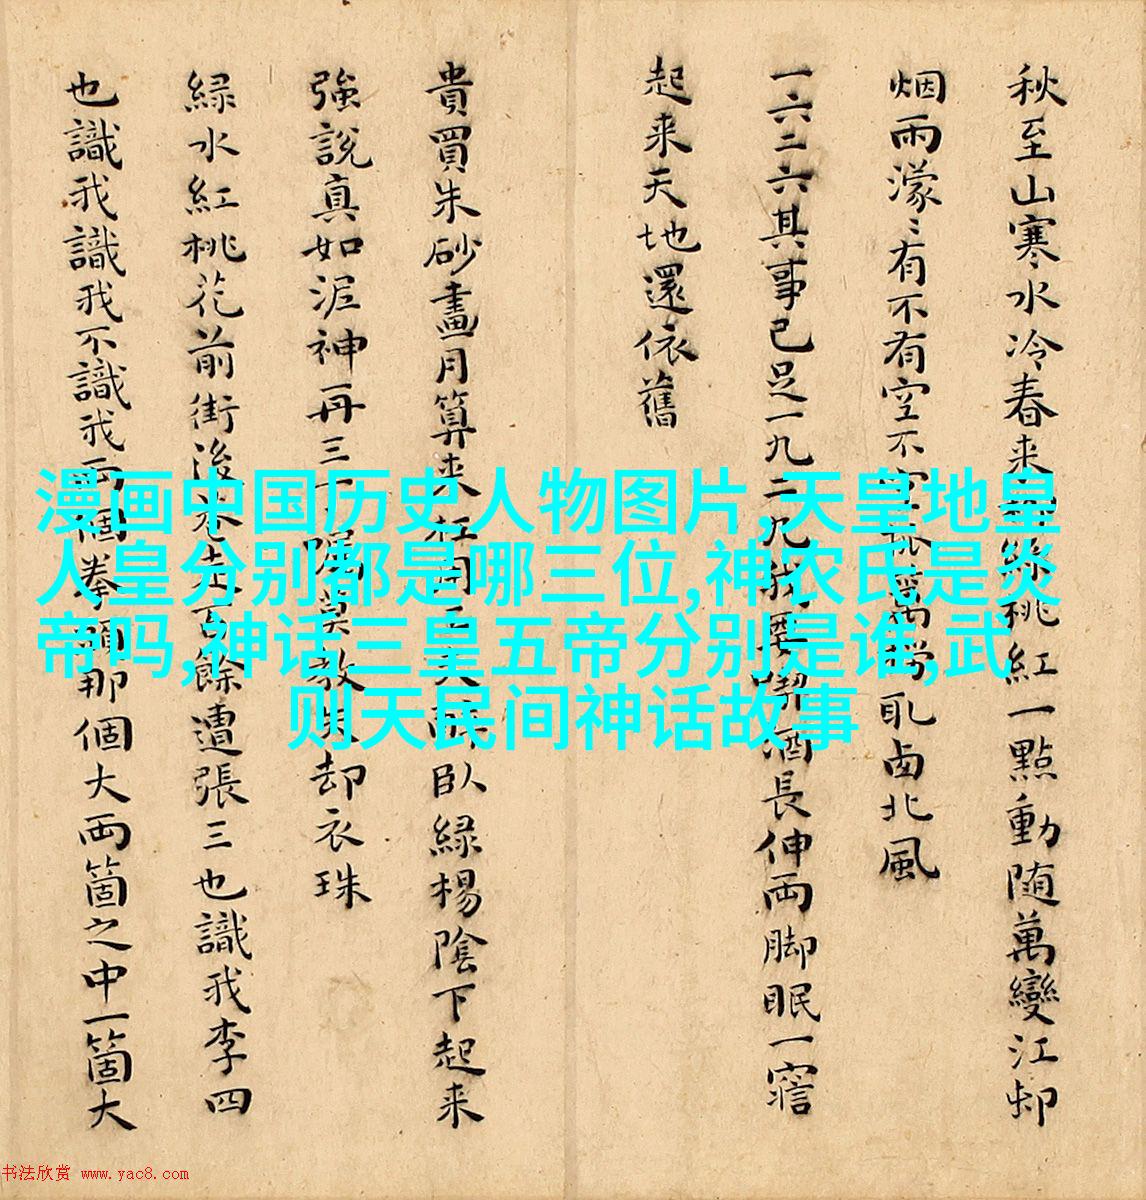 秋至山寒水冷春来桃紅一點動随萬變江邨
烟雨濛〻有不有空不籬撈取西北風
一六二六其事已足一九二九我要喫酒長伸両脚眠一寤
起来天地還依舊
貴買朱砂畫月算来枉用工夫醉臥緑楊陰下起来
強說真如泥神再三叮嘱莫教失却衣珠
緑水紅桃花前街後巷走百餘遭張三也識我李四
也識我識我不識我両個拳頭那個大両箇之中一箇大
漫画中国历史人物图片,天皇地皇
人皇分别都是哪三位,神农氏是炎
帝吗,神话三皇五帝分别是谁,武
则天民间神话故事
书法欣赏 www.yac8.com